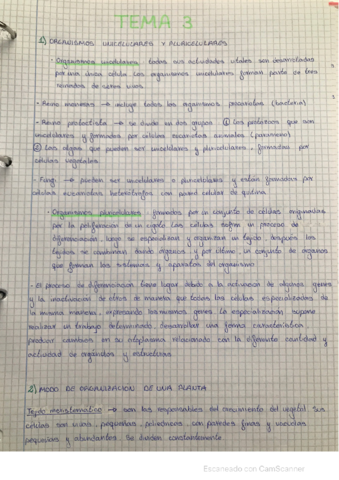 TEMA 3
1) ORGANISMOS UNICELULARES Y PLURICELULARES
· Organismos unicelulares: todas sus actividades vitales son desarrolladas
por una única célula. Los organismos unicelulares forman parte de tres
reinos de seres vivos.
- Reino moneras → incluye todos los organismos procariotas (bacteria)
- Reino protoctista → se divide en dos grupos ① Los protozoos que son
unicelulares y formados por células eucariotas animales (paramecio)
② Las algas que pueden ser unicelulares y pluricelulares, formadas por
células vegetales
- Fungi → pueden ser unicelulares o pluricelulares y están formados por
células eucariotas heterótrofas con pared celular de quitina.
· Organismos pluricelulares: formados por un conjunto de células originadas
por la proliferación de un cigoto. Las células sufren un proceso de
diferenciación, luego se especializan y organizan un tejido, después los
tejidos se combinan dando órganos y por último, un conjunto de órganos
que forman los sistemas y aparatos del organismo.
- El proceso de diferenciación tiene lugar debido a la activación de algunos genes
y la inactivación de otros de manera que todas las células especializadas de
la misma manera, expresando los mismos genes. La especialización supone
realizar un trabajo determinado, desarrollar una forma característica,
producir cambios en su citoplasma relacionado con la diferente cantidad y
actividad de orgánulos y estructuras
2) MODO DE ORGANIZACIÓN DE UNA PLANTA
Tejido meristemático → son los responsables del crecimiento del vegetal. Sus
células son vivas, pequeñas, poliédricas, con paredes finas y vacuolas
pequeñas y abundantes. Se dividen constantemente.
Escaneado con CamScanner